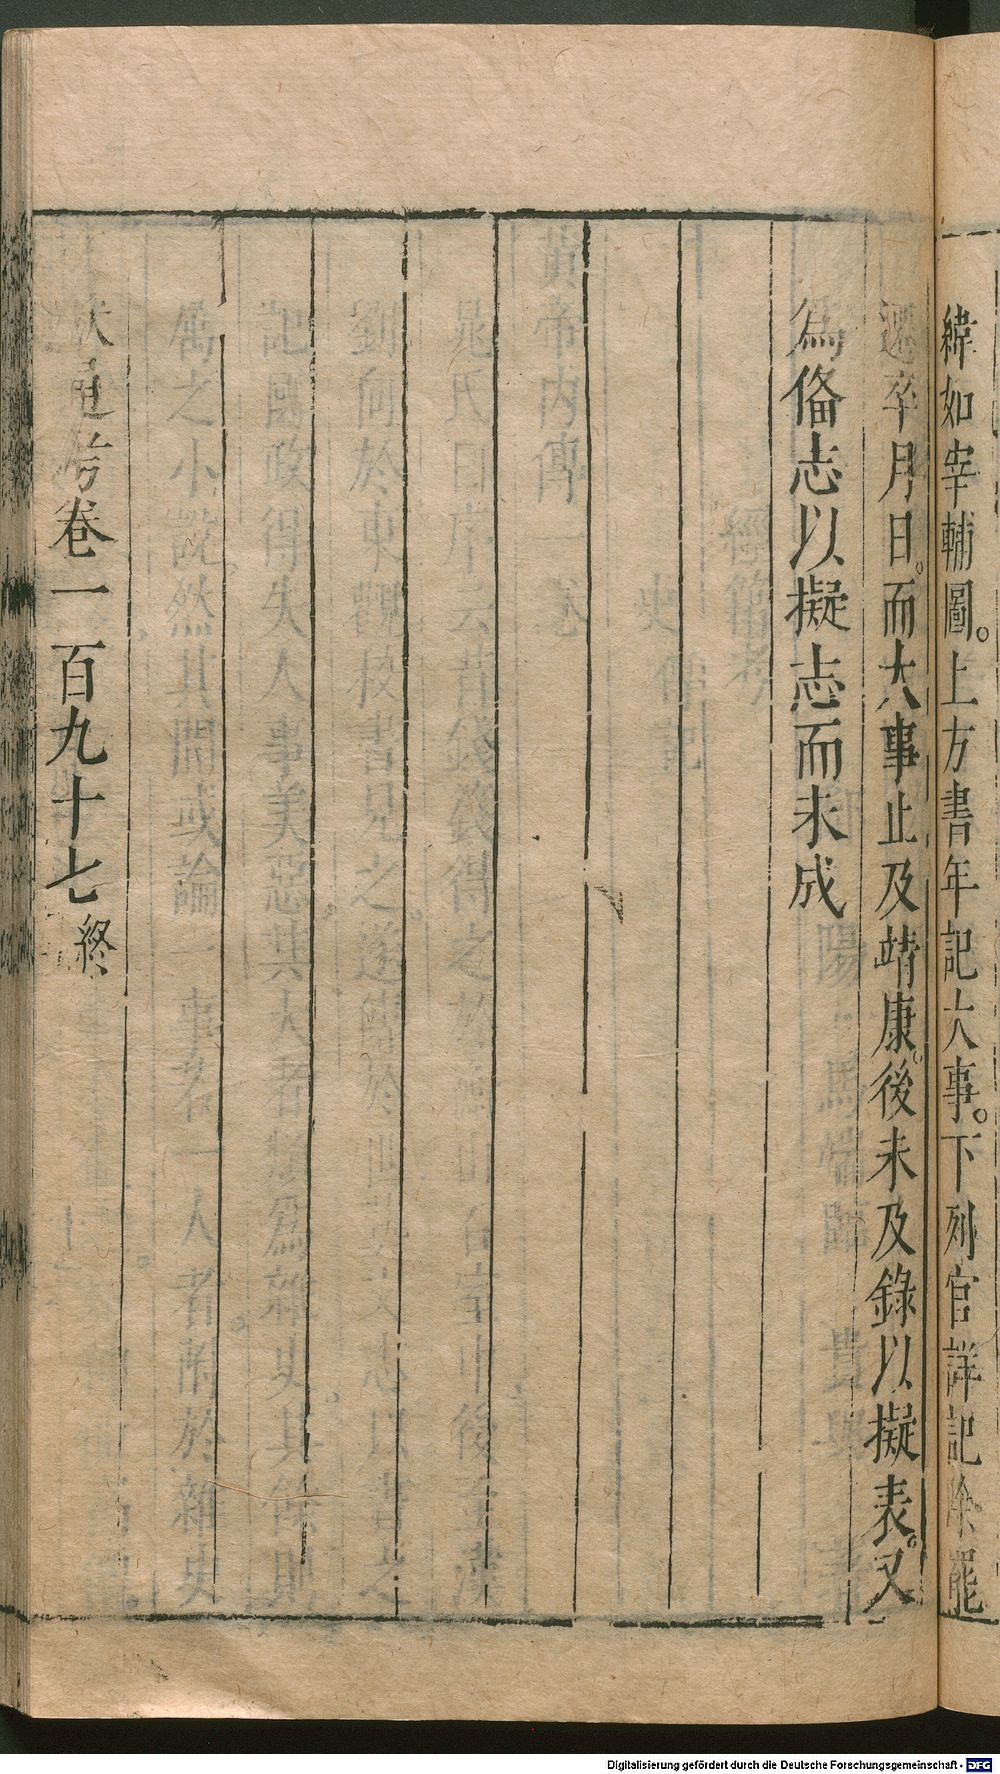 緯如宰輔圖。上方書年記大事。下列官詳記除罷
遷卒月日。而大事止及靖康。後未及錄以擬表。又
為俻志以擬志而未成
獻通考卷一百九十七終
Digitalisierung gefördert durch die Deutsche Forschungsgemeinschaft - DFG